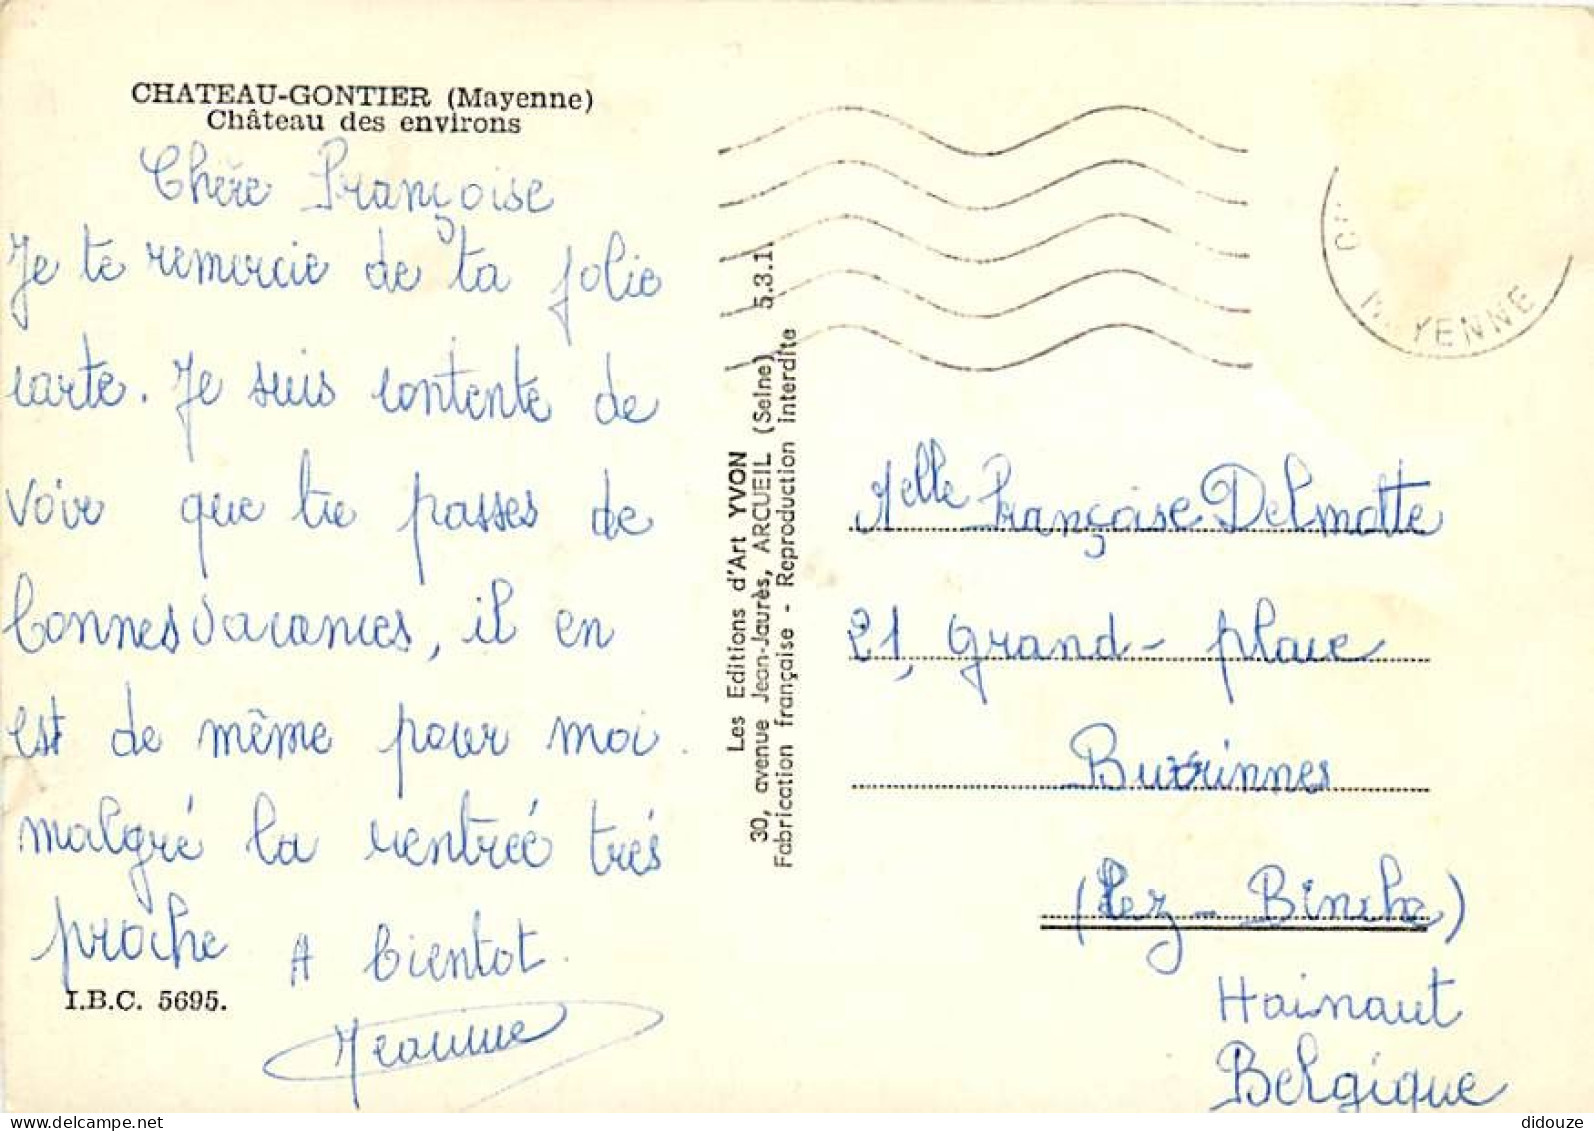 CHATEAU-GONTIER (Mayenne)
Château des environs
Chère Françoise
Je te remercie de ta jolie
carte. Je suis contente de
voir que tu passes de
bonnes vacances, il en
est de même pour moi.
malgré la rentrée très
proche A bientot.
I.B.C. 5695.
Jeanine
Les Editions d'Art YVON
30, avenue Jean-Jaurès, ARCUEIL (Seine) 5.3.1
Fabrication française - Reproduction interdite
MAYENNE
Melle Françoise Delmotte
21, Grand-place
Buvrinnes
(Lez-Binche)
Hainaut
Belgique
didouze